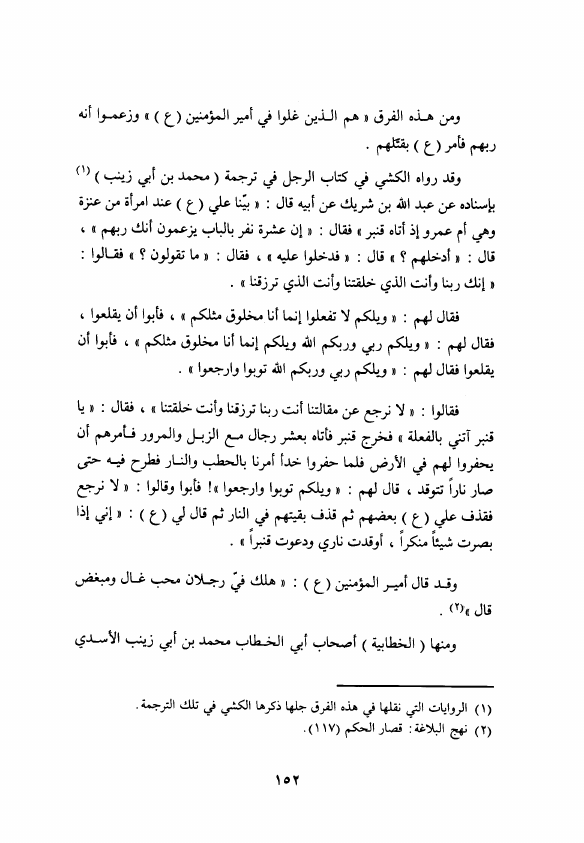 ومن هـذه الفرق « هم الـذين غلوا في أمير المؤمنين ( ع ) » وزعمـوا أنه
ربهم فأمر ( ع ) بقتْلهم .
وقد رواه الكشي في كتاب الرجل في ترجمة ( محمد بن أبي زينب ) (١)
بإسناده عن عبد الله بن شريك عن أبيه قال : « بيّنا علي ( ع ) عند امرأة من عنزة
وهي أم عمرو إذ أتاه قنبر » فقال : « إن عشرة نفر بالباب يزعمون أنك ربهم » ،
قال : « أدخلهم ؟ » قال : « فدخلوا عليه » ، فقال : « ما تقولون ؟ » فقـالوا :
« إنك ربنا وأنت الذي خلقتنا وأنت الذي ترزقنا » .
فقال لهم : « ويلكم لا تفعلوا إنما أنا مخلوق مثلكم » ، فأبوا أن يقلعوا ،
فقال لهم : « ويلكم ربي وربكم الله ويلكم إنما أنا مخلوق مثلكم » ، فأبوا أن
يقلعوا فقال لهم : « ويلكم ربي وربكم الله توبوا وارجعوا » .
فقالوا : « لا نرجع عن مقالتنا أنت ربنا ترزقنا وأنت خلقتنا » ، فقال : « يا
قنبر آتني بالفعلة » فخرج قنبر فأتاه بعشر رجال مـع الزبـل والمرور فـأمرهم أن
يحفروا لهم في الأرض فلما حفروا خدأ أمرنا بالحطب والنـار فطرح فيـه حتى
صار ناراً تتوقد ، قال لهم : « ويلكم توبوا وارجعوا »! فأبوا وقالوا : « لا نرجع
فقذف علي ( ع ) بعضهم ثم قذف بقيتهم في النار ثم قال لي ( ع ) : « إني إذا
بصرت شيئاً منكراً ، أوقدت ناري ودعوت قنبراً » .
وقـد قال أميـر المؤمنين ( ع ) : « هلك فيّ رجـلان محب غـال ومبغض
قال »(٢) .
ومنها ( الخطابية ) أصحاب أبي الخـطاب محمد بن أبي زينب الأسـدي
(١) الروايات التي نقلها في هذه الفرق جلها ذكرها الكشي في تلك الترجمة.
(٢) نهج البلاغة: قصار الحكم (١١٧).
١٥٢